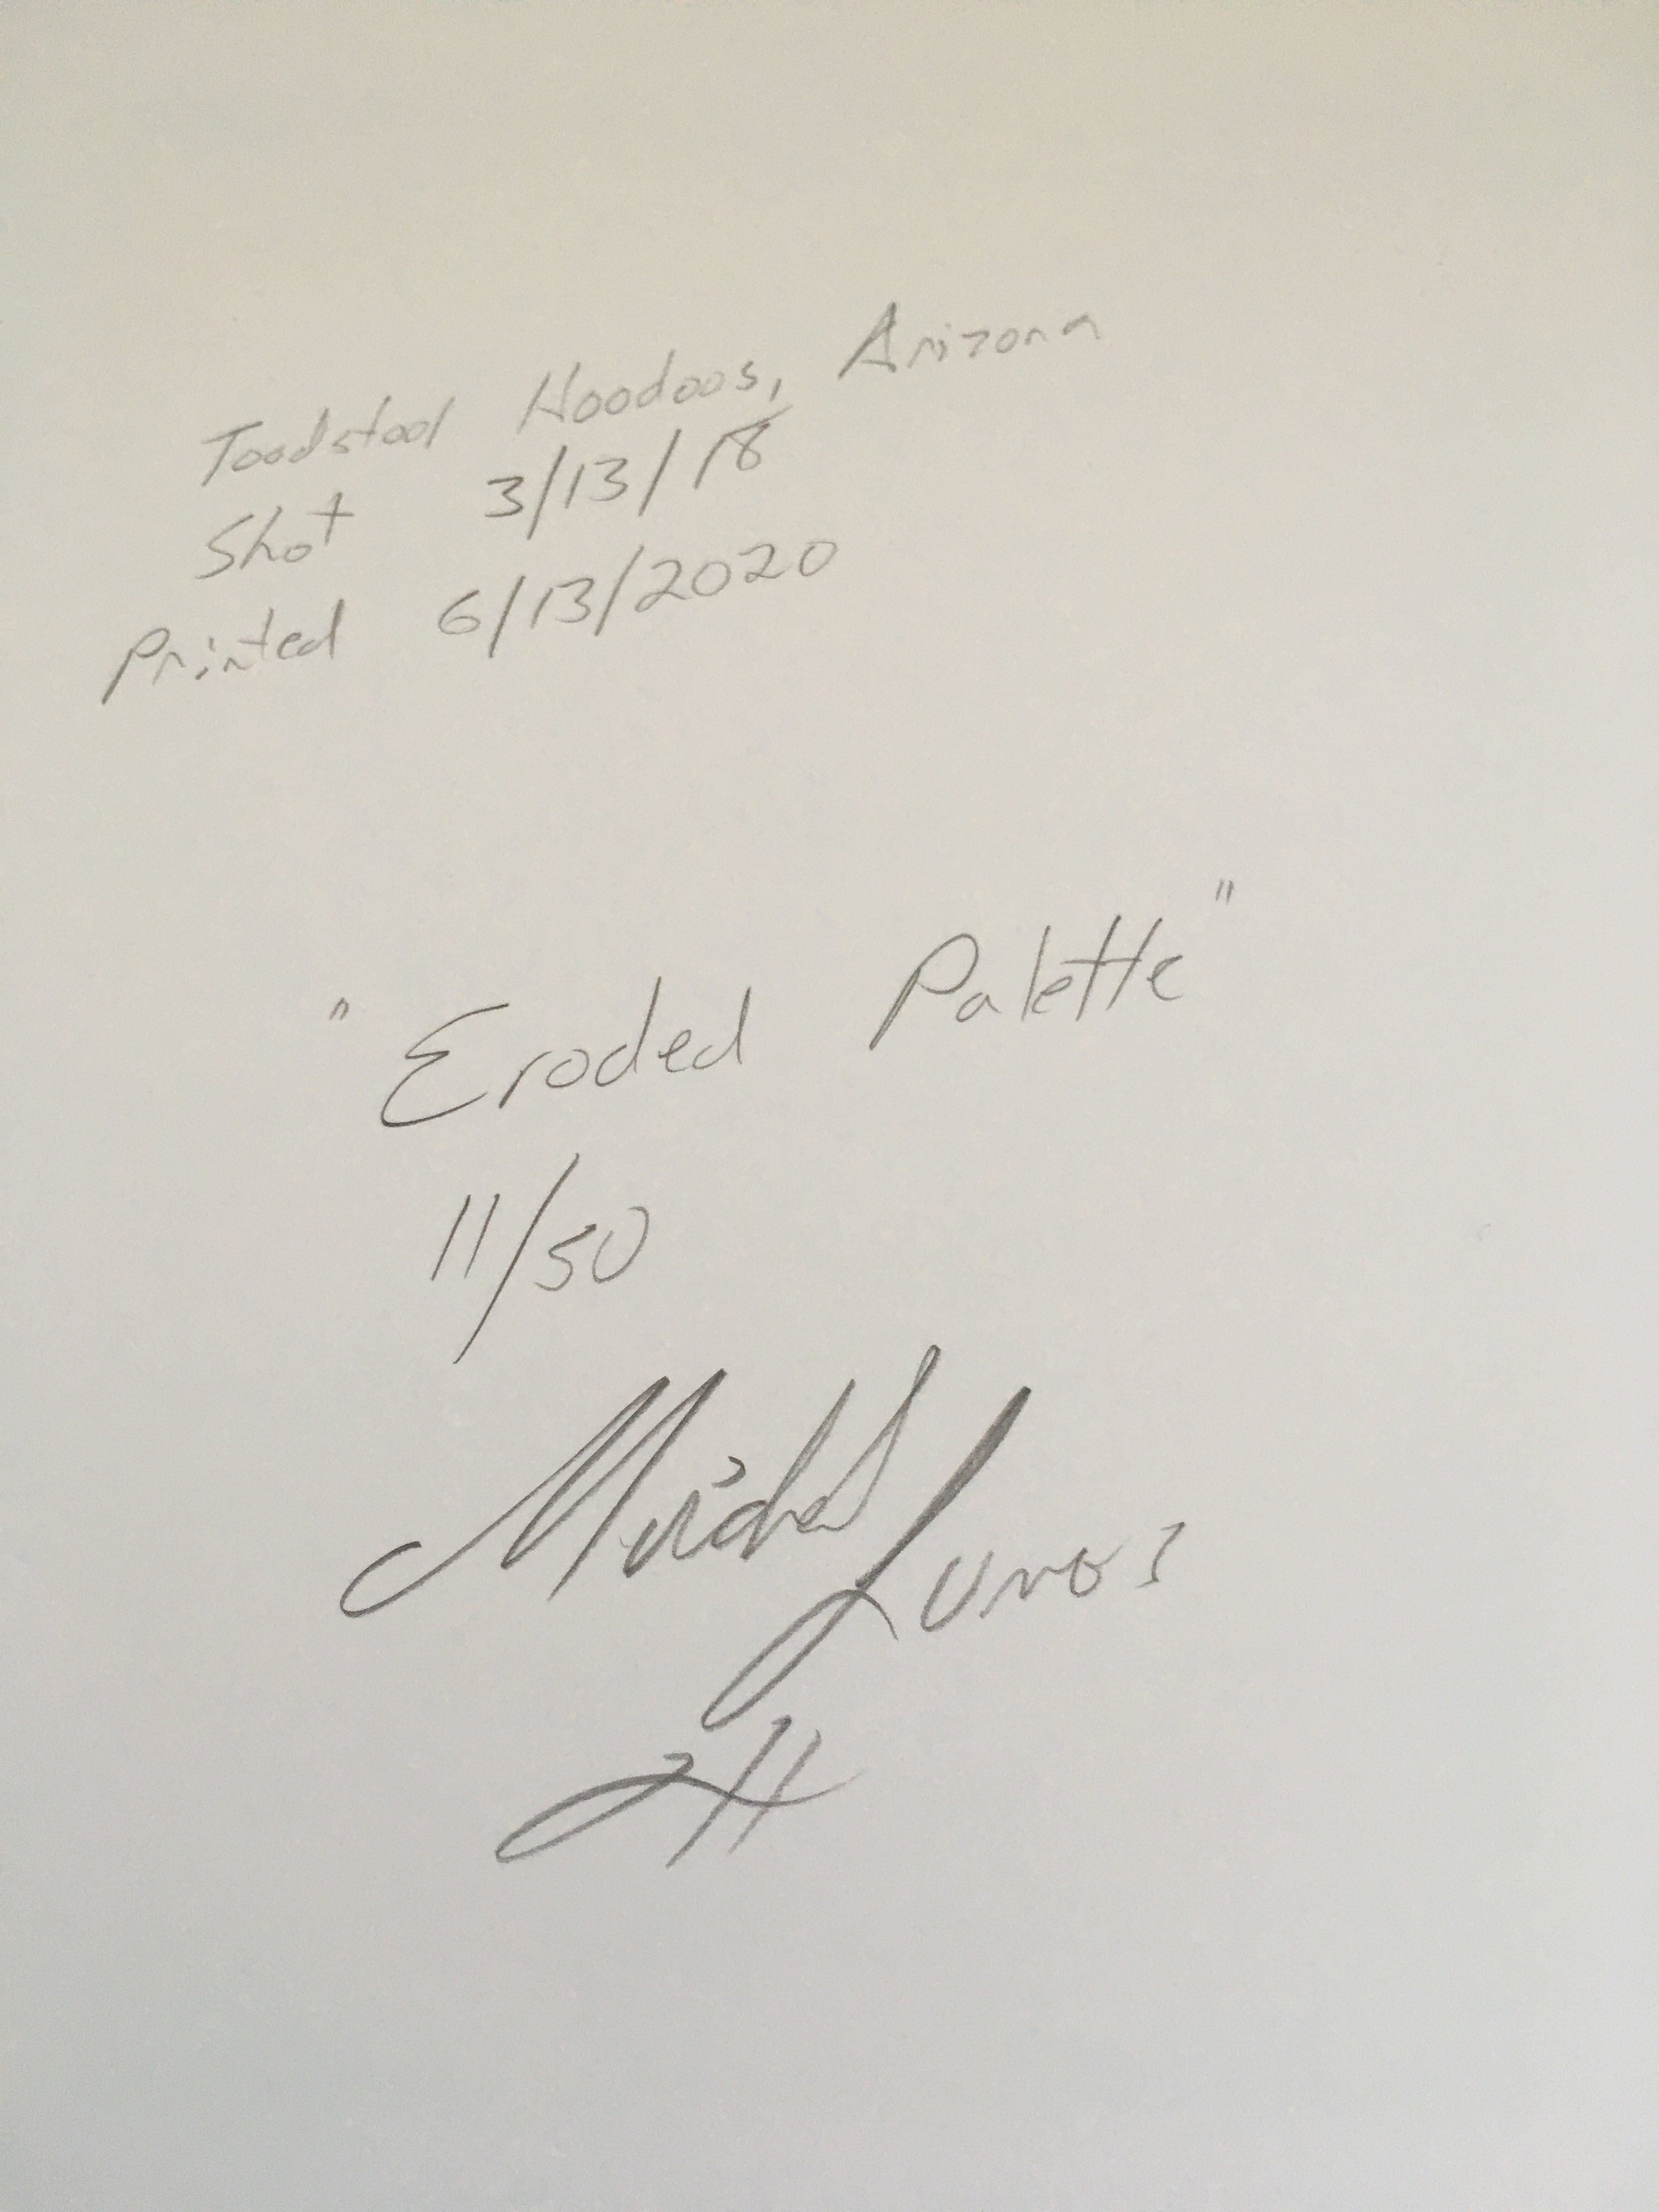 Toadstool Hoodoos, Arizona
Shot 3/13/18
Printed 6/13/2020
"Eroded Palette"
11/50
Michael